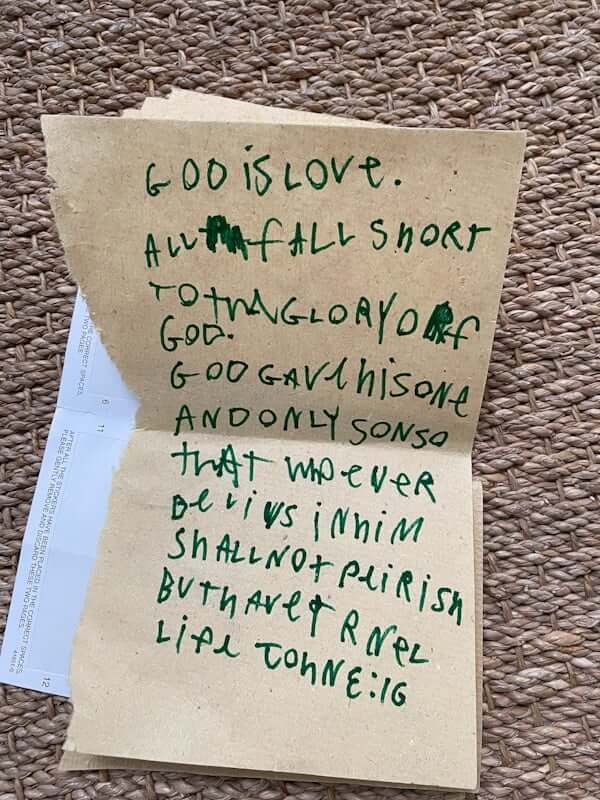 GOD iS LOVe.
ALL fALL ShORT
TO thA GLORY Of
GOD.
GOD GAVe hiS ONe
AND ONLY SON SO
thAt WhOeVeR
BeLiVS iN hiM
ShALL NOt PeiRiSh
BUt hAVe etRNeL
Life JOhN E:16
TWO PAGES.
CORRECT SPACES.
6 11
AFTER ALL THE STICKERS HAVE BEEN PLACED IN THE CORRECT SPACES
PLEASE GENTLY REMOVE AND DISCARD THESE TWO PAGES.
12